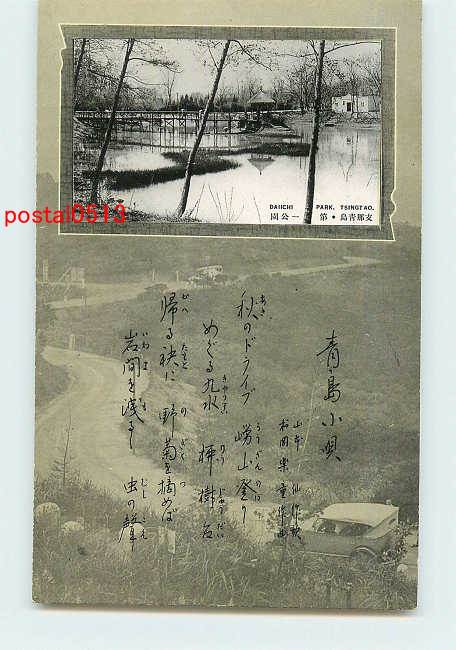 DAIICHI PARK, TSINGTAO.
支那青島・第一公園
postal0513
青島小唄
山本 仙作歌
秋のドライブ 嶗山登り
めぐる九水 樺樹台
帰る袂に 野菊を摘めば
岩間を洩るゝ 虫の聲